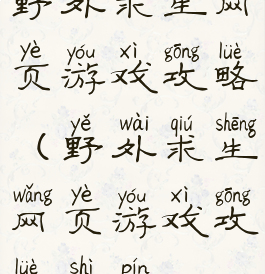 野外求生网
yè yóu xì gōng lüè
页游戏攻略
yě wài qiú shēng
(野外求生
wǎng yè yóu xì gōng
网页游戏攻
lüè shì pín